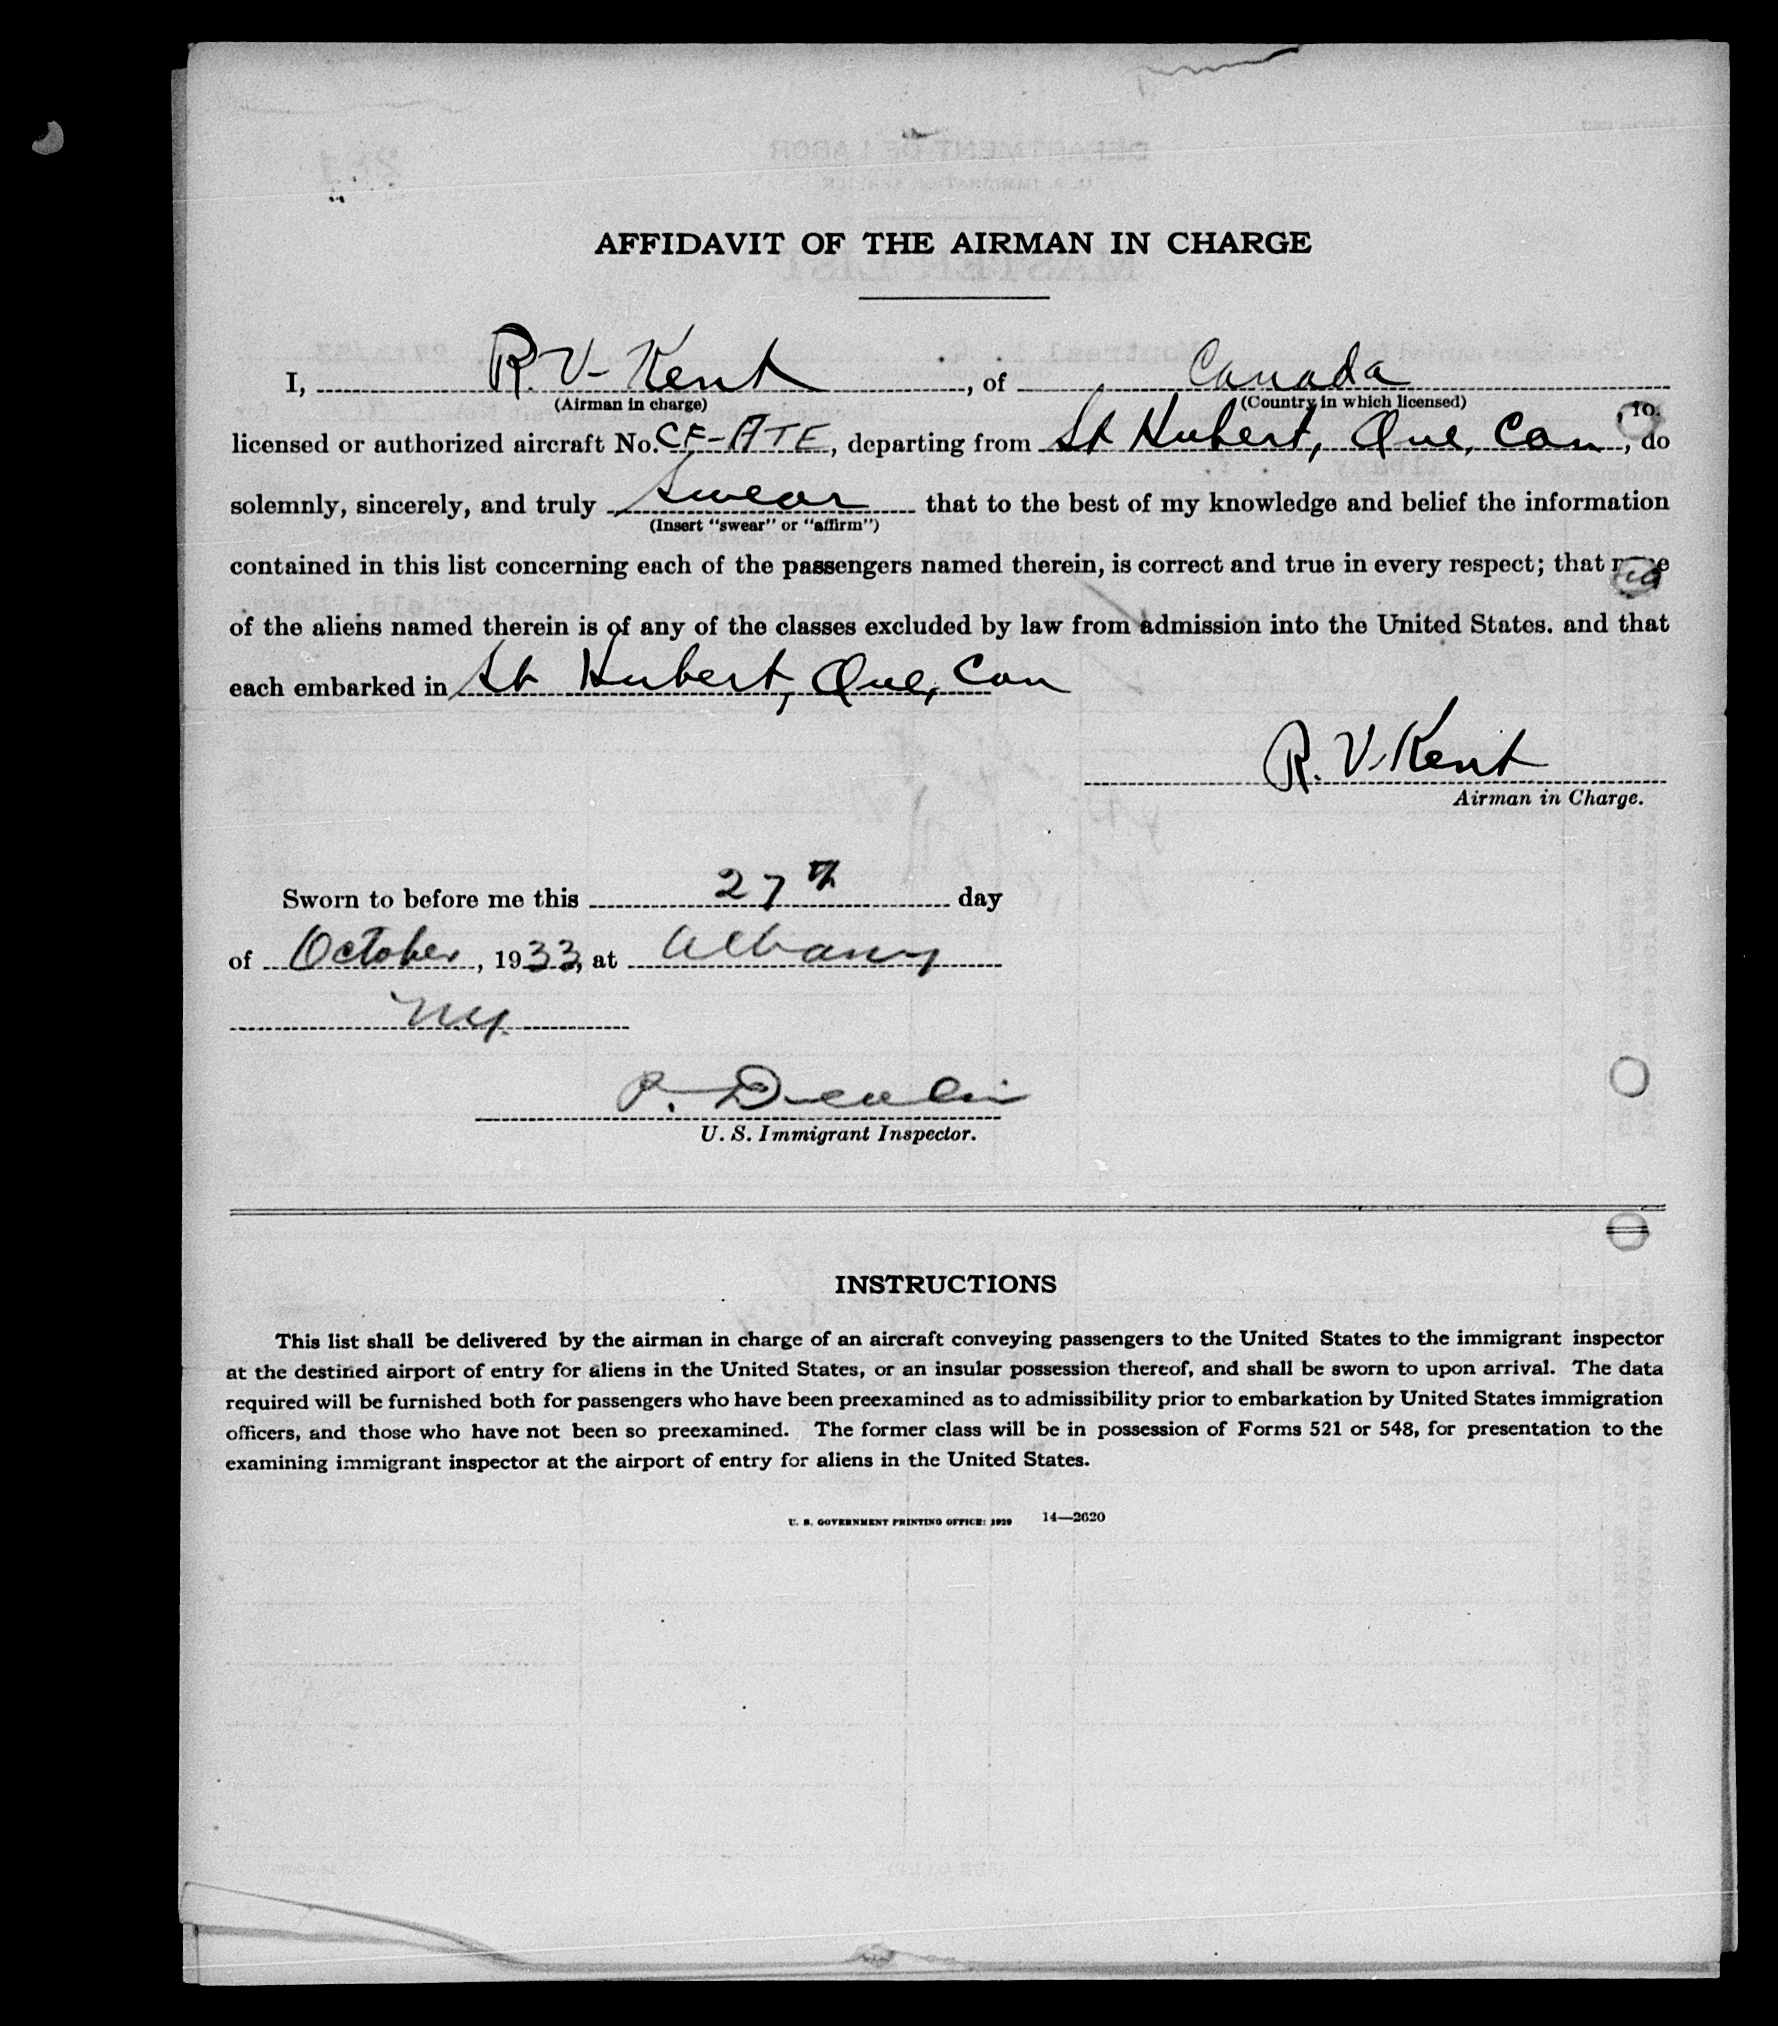 AFFIDAVIT OF THE AIRMAN IN CHARGE
I, R. V. Kent, of Canada
(Airman in charge) (Country in which licensed)
licensed or authorized aircraft No. CF-ATE, departing from St Hubert, Que, Can, do
solemnly, sincerely, and truly swear that to the best of my knowledge and belief the information
(Insert "swear" or "affirm")
contained in this list concerning each of the passengers named therein, is correct and true in every respect; that
of the aliens named therein is of any of the classes excluded by law from admission into the United States. and that
each embarked in St Hubert, Que, Can
R. V. Kent
Airman in Charge.
Sworn to before me this 27th day
of October, 1933, at Albany
N.Y.
P.
U. S. Immigrant Inspector.
INSTRUCTIONS
This list shall be delivered by the airman in charge of an aircraft conveying passengers to the United States to the immigrant inspector
at the destined airport of entry for aliens in the United States, or an insular possession thereof, and shall be sworn to upon arrival. The data
required will be furnished both for passengers who have been preexamined as to admissibility prior to embarkation by United States immigration
officers, and those who have not been so preexamined. The former class will be in possession of Forms 521 or 548, for presentation to the
examining immigrant inspector at the airport of entry for aliens in the United States.
U. S. GOVERNMENT PRINTING OFFICE: 1929 14—2620